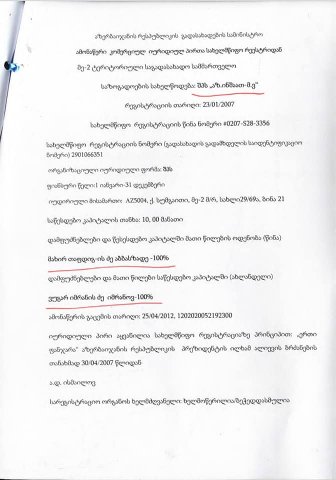 აზერბაიჯანის რესპუბლიკის გადასახადების სამინისტრო
ამონაწერი კომერციულ იურიდიულ პირთა სახელმწიფო რეესტრიდან
მე-2 ტერიტორიული საგადასახადო სამმართველო
საზოგადოების სახელწოდება: შპს „აზ.ინშაათ-მ.ე"
რეგისტრაციის თარიღი: 23/01/2007
სახელმწიფო რეგისტრაციის წინა ნომერი #0207-S28-3356
სახელმწიფო რეგისტრაციის ნომერი (გადასახადის გადამხდელის საიდენტიფიკაციო
ნომერი) 2901066351
ორგანიზაციული იურიდიული ფორმა: შპს
ფიანსური წელი:1 იანვარი-31 დეკემბერი
იურიდიული მისამართი: AZ5004, ქ. სუმგაითი, მე-2 მ/რ, სახლი29/69ა, ბინა 21
საწესდებო კაპიტალის თანხა: 10, 00 მანათი
დამფუძნებლები და წესებდებო კაპიტალში მათი წილების ოდენობა (წინა)
მახირ თაფდიგ-ის ძე აბბასზადე -100%
დამფუძნებლები და მათი წილები საწესდებო კაპიტალში (ახლანდელი)
ვუგარ იმრანის ძე იმრანოვ-100%
ამონაწერის გაცემის თარიღი: 25/04/2012, 1202020052192300
იურიდიული პირი აყვანილია სახელმწიფო რეგისტრაციაზე პრინციპით: „ერთი
ფანჯარა" აზერბაიჯანის რესპუბლიკის პრეზიდენტის ილჰამ ალიევის ბრძანების
თანახმად 30/04/2007 წლიდან
ა.დ. ისმაილოვ
სარეგისტრაციო ორგანოს ხელმძღვანელი: ხელმოწერილია/ბეჭედდასმულია